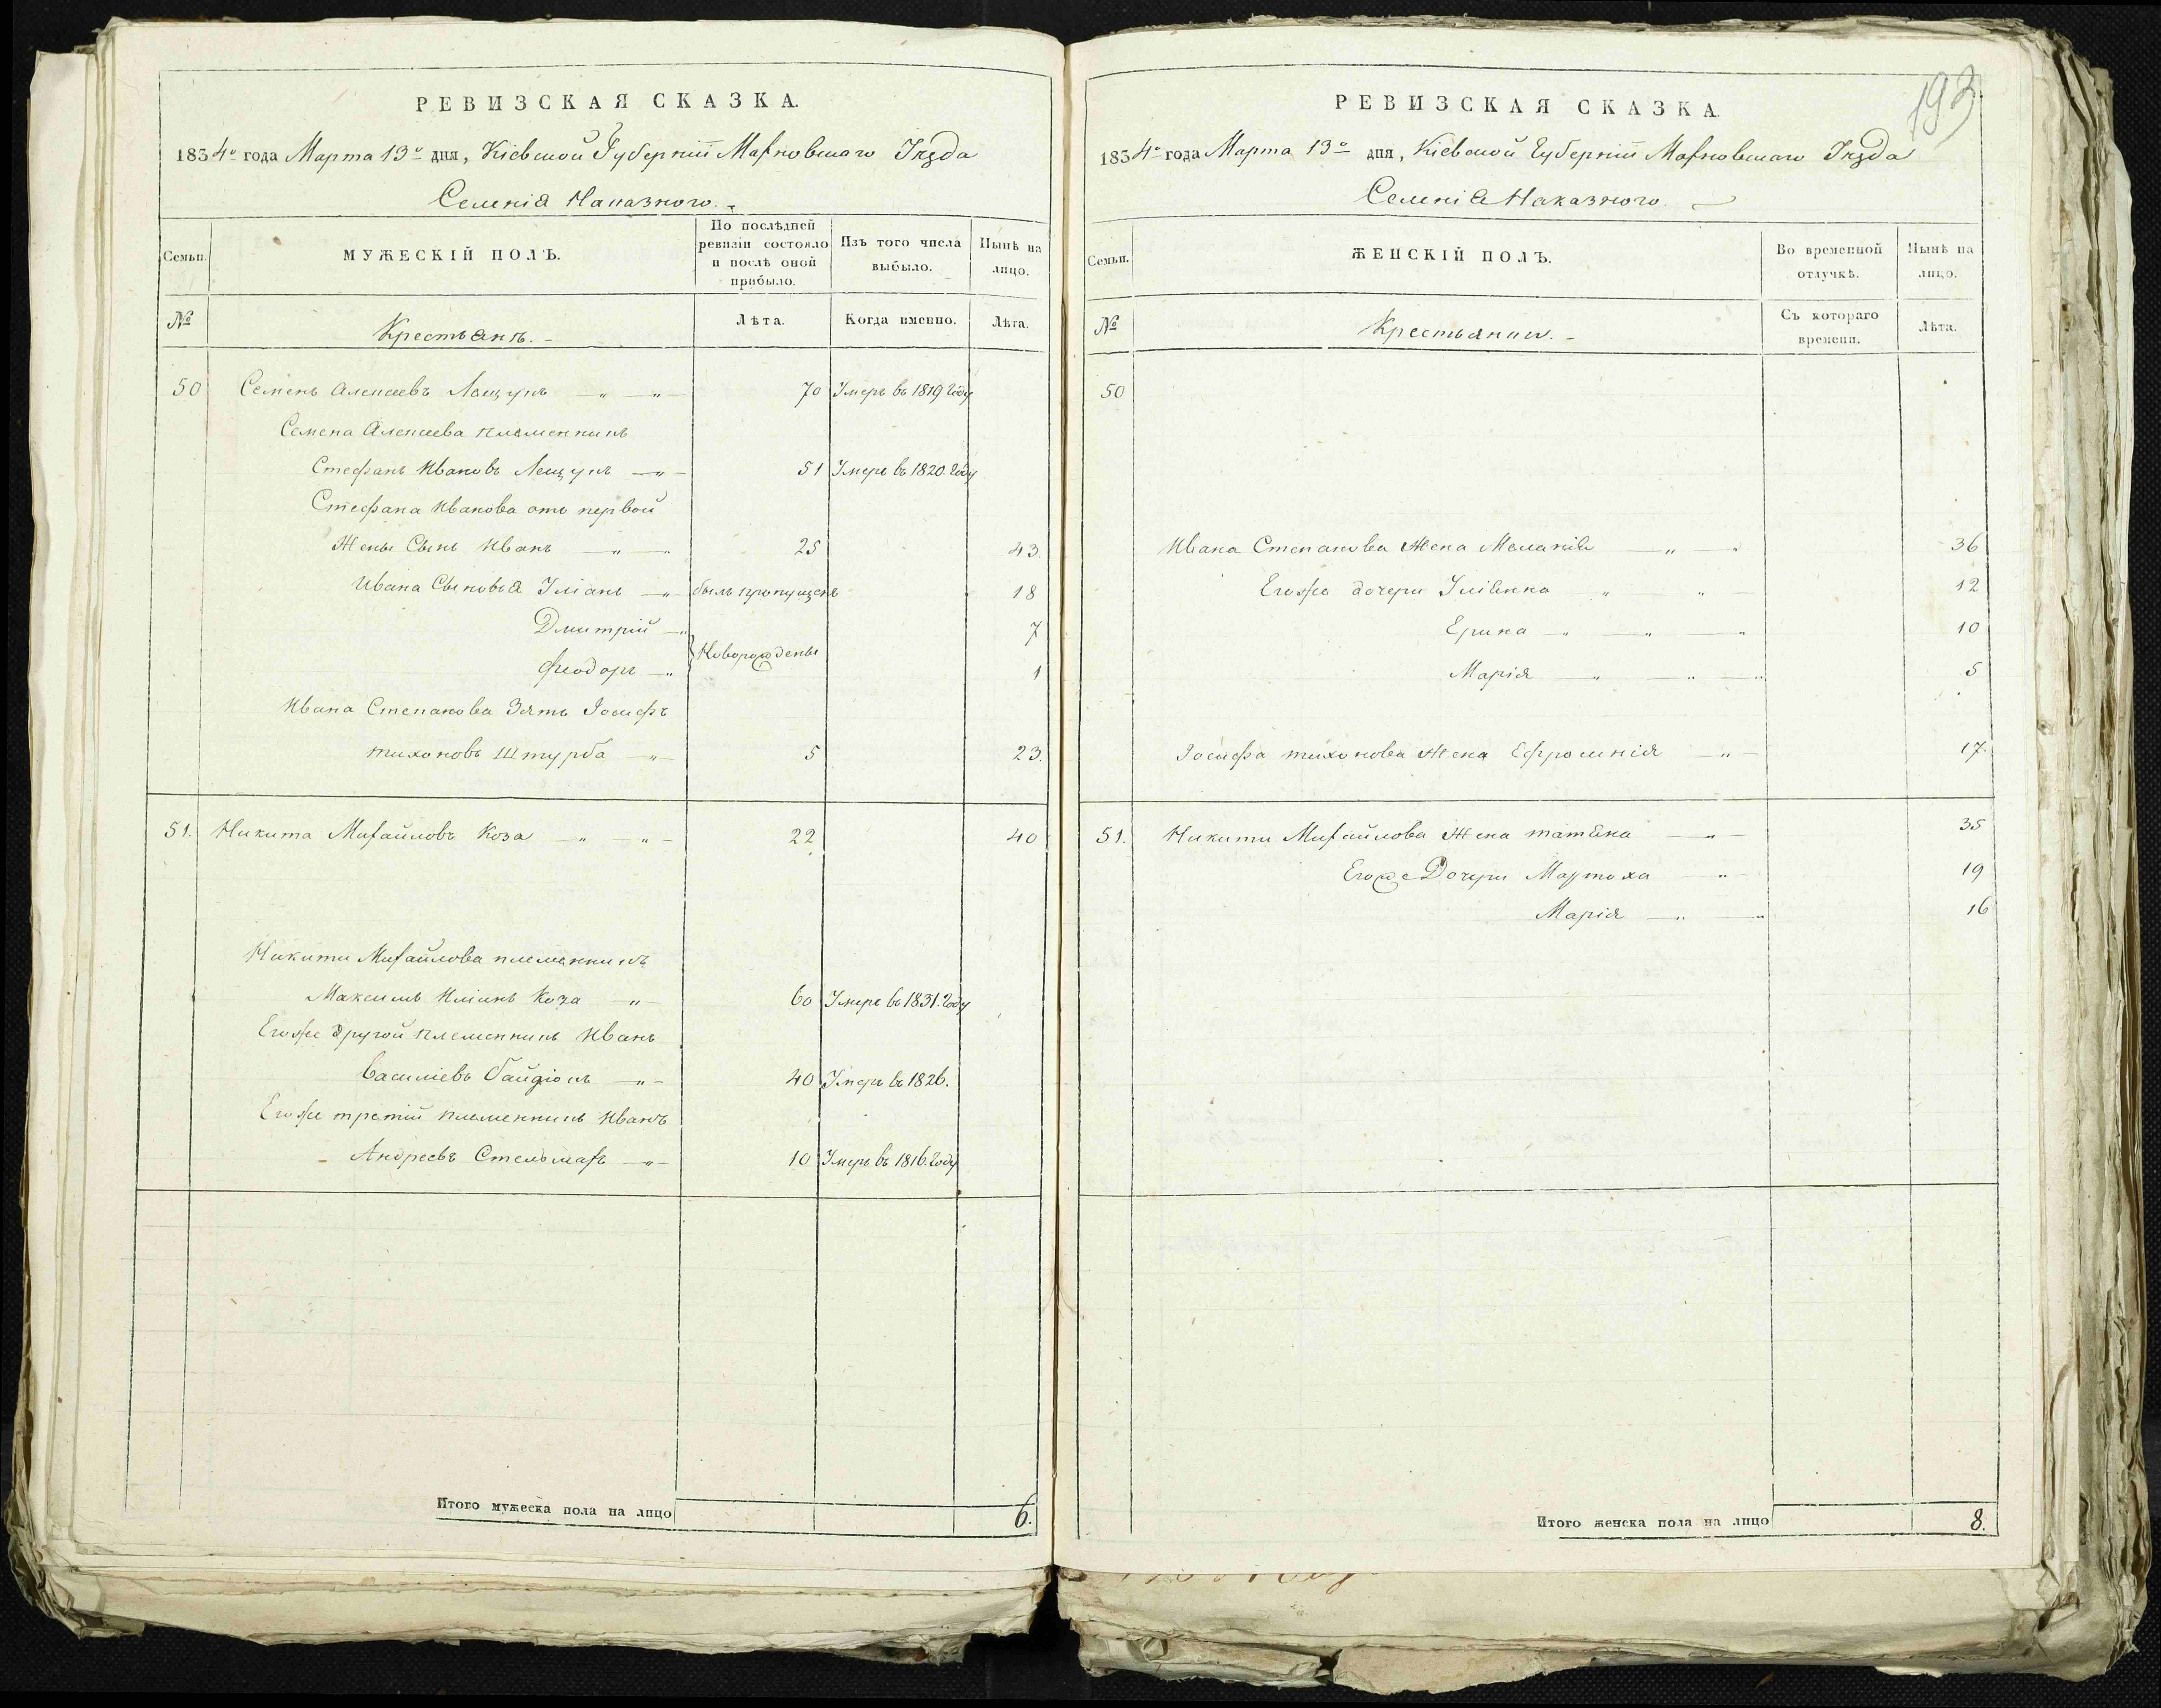 РЕВИЗСКАЯ СКАЗКА.
1834го года Марта 13го дня, Кіевской Губерніи Махновскаго Уѣзда
Селенія Наказного.
Семьи.
МУЖЕСКІЙ ПОЛЪ.
По послѣдней
ревизіи состояло
и послѣ оной
прибыло.
Изъ того числа
выбыло.
Нынѣ на
лицо.
№
Крестьянъ.
Лѣта.
Когда именно.
Лѣта.
50 Семенъ Алексеевъ Лещукъ 70 Умеръ въ 1819 году
Семена Алексеева племенникъ
Стефанъ Ивановъ Лещукъ 51 Умеръ въ 1820. году
Стефана Иванова отъ первой
Жены Сынъ Иванъ 25 43.
Ивана Сыновья Уліанъ былъ пропущенъ 18
Дмитрій 7
Новорождены
Феодоръ 1
Ивана Степанова Зять Іосифъ
тихоновъ Штурба 5 23.
51. Никита Михайловъ Коза 22 40
Никити Михайлова племенникъ
Максимъ Иліинъ Коза 60 Умеръ въ 1831. году
Егоже другой племенникъ Иванъ
Василіевъ 40 Умеръ въ 1826.
Егоже третій племенникъ Иванъ
Андреевъ Стельмахъ 10 Умеръ въ 1816. году
Итого мужеска пола на лицо 6.
193
РЕВИЗСКАЯ СКАЗКА.
1834го года Марта 13го дня, Кіевской Губерніи Махновскаго Уѣзда
Селенія Наказного.
Семьи.
ЖЕНСКІЙ ПОЛЪ.
Во временной
отлучкѣ.
Нынѣ на
лицо.
№
Крестьянки.
Съ котораго
времени.
Лѣта.
50
Ивана Степанова Жена Меланія 36
Егоже дочери Уліянна 12
Ерина 10
Марія 5
Іосифа тихонова Жена Ефросинія 17.
51. Никити Михайлова Жена татяна 35
Егоже Дочери Мартоха 19
Марія 16
Итого женска пола на лицо 8.